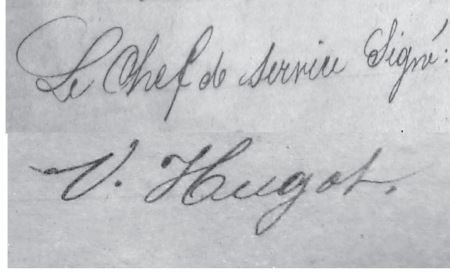 Le Chef de service Signé:
V. Hugot.